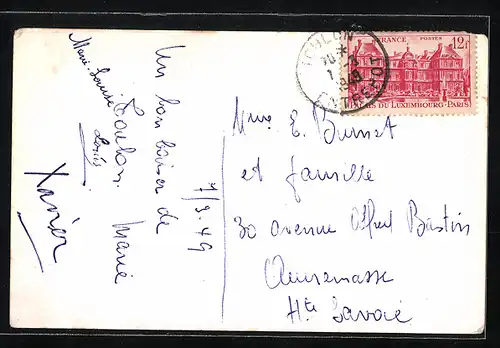 Un bon baiser de
Toulon.
Marie
Marie-Louise
Xavier
7/3.49
TOULON
FRANCE POSTES 12F
PALAIS DU LUXEMBOURG-PARIS
Mme E. Burnet
et famille
30 avenue Alfred Bastin
Annemasse
Hte Savoie